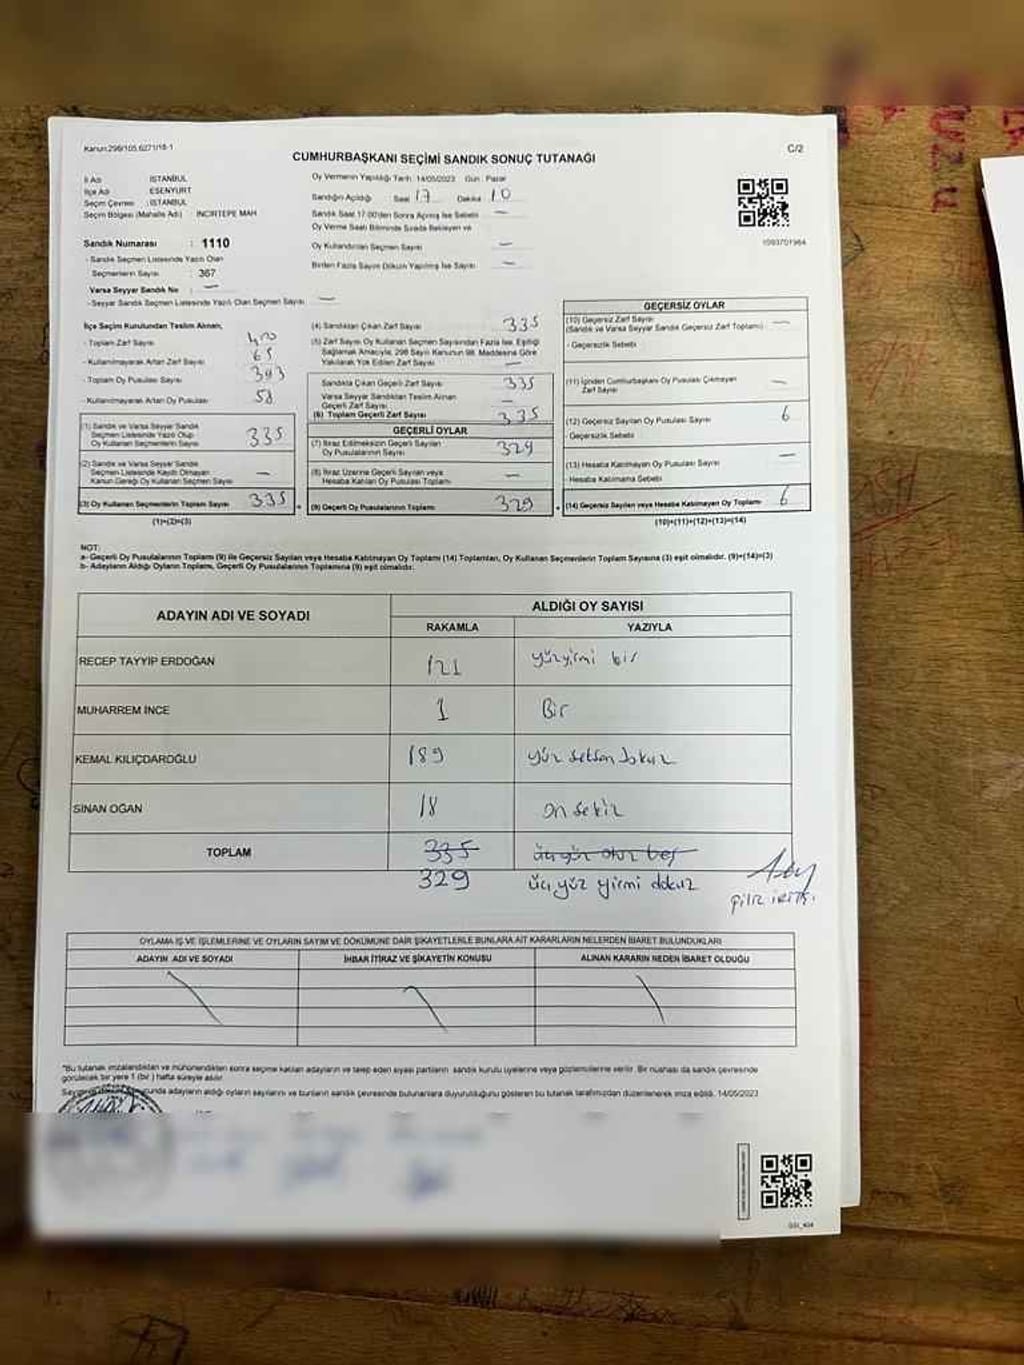 Kanun:298/105,6271/18-1
C/2
CUMHURBAŞKANI SEÇİMİ SANDIK SONUÇ TUTANAĞI
İl Adı : İSTANBUL
İlçe Adı : ESENYURT
Seçim Çevresi : İSTANBUL
Seçim Bölgesi (Mahalle Adı) : İNCİRTEPE MAH
Sandık Numarası : 1110
- Sandık Seçmen Listesinde Yazılı Olan
Seçmenlerin Sayısı : 367
Varsa Seyyar Sandık No : —
- Seyyar Sandık Seçmen Listesinde Yazılı Olan Seçmen Sayısı : —
Oy Vermenin Yapıldığı Tarih : 14/05/2023 Gün : Pazar
Sandığın Açıldığı Saat 17 Dakika 10
Sandık Saat 17:00'den Sonra Açılmış İse Sebebi —
Oy Verme Saati Bitiminde Sırada Bekleyen ve
Oy Kullandırılan Seçmen Sayısı —
Birden Fazla Sayım Döküm Yapılmış İse Sayısı —
1093701984
İlçe Seçim Kurulundan Teslim Alınan;
- Toplam Zarf Sayısı 400
- Kullanılmayarak Artan Zarf Sayısı 65
- Toplam Oy Pusulası Sayısı 393
- Kullanılmayarak Artan Oy Pusulası 58
(1) Sandık ve Varsa Seyyar Sandık
Seçmen Listesinde Yazılı Olup
Oy Kullanan Seçmenlerin Sayısı 335
(2) Sandık ve Varsa Seyyar Sandık
Seçmen Listesinde Kayıtlı Olmayan
Kanun Gereği Oy Kullanan Seçmen Sayısı —
(3) Oy Kullanan Seçmenlerin Toplam Sayısı 335
(1)+(2)=(3)
(4) Sandıktan Çıkan Zarf Sayısı 335
(5) Zarf Sayısı Oy Kullanan Seçmen Sayısından Fazla İse, Eşitliği
Sağlamak Amacıyla, 298 Sayılı Kanunun 98. Maddesine Göre
Yakılarak Yok Edilen Zarf Sayısı —
Sandıkta Çıkan Geçerli Zarf Sayısı 335
Varsa Seyyar Sandıktan Teslim Alınan
Geçerli Zarf Sayısı —
(6) Toplam Geçerli Zarf Sayısı 335
GEÇERLİ OYLAR
(7) İtiraz Edilmeksizin Geçerli Sayılan
Oy Pusulasının Sayısı 329
(8) İtiraz Üzerine Geçerli Sayılan veya
Hesaba Katılan Oy Pusulası Toplamı —
(9) Geçerli Oy Pusulalarının Toplamı 329
GEÇERSİZ OYLAR
(10) Geçersiz Zarf Sayısı
(Sandık ve Varsa Seyyar Sandık Geçersiz Zarf Toplamı) —
- Geçersizlik Sebebi
(11) İçinden Cumhurbaşkanı Oy Pusulası Çıkmayan
Zarf Sayısı —
(12) Geçersiz Sayılan Oy Pusulası Sayısı 6
- Geçersizlik Sebebi
(13) Hesaba Katılmayan Oy Pusulası Sayısı —
- Hesaba Katılmama Sebebi
(14) Geçersiz Sayılan veya Hesaba Katılmayan Oy Toplamı 6
(10)+(11)+(12)+(13)=(14)
NOT:
a- Geçerli Oy Pusulalarının Toplamı (9) ile Geçersiz Sayılan veya Hesaba Katılmayan Oy Toplamı (14) Toplamları, Oy Kullanan Seçmenlerin Toplam Sayısına (3) eşit olmalıdır. (9)+(14)=(3)
b- Adayların Aldığı Oyların Toplamı, Geçerli Oy Pusulalarının Toplamına (9) eşit olmalıdır.
ADAYIN ADI VE SOYADI ALDIĞI OY SAYISI
RAKAMLA YAZIYLA
RECEP TAYYİP ERDOĞAN 121 yüzyirmi bir
MUHARREM İNCE 1 Bir
KEMAL KILIÇDAROĞLU 189 yüz seksen dokuz
SİNAN OĞAN 18 on sekiz
TOPLAM 335 üçyüz otuz beş
329 üç yüz yirmi dokuz
OYLAMA İŞ VE İŞLEMLERİNE VE OYLARIN SAYIM VE DÖKÜMÜNE DAİR ŞİKAYETLERLE BUNLARA AİT KARARLARIN NELERDEN İBARET BULUNDUKLARI
ADAYIN ADI VE SOYADI İHBAR İTİRAZ VE ŞİKAYETİN KONUSU ALINAN KARARIN NEDEN İBARET OLDUĞU
"Bu tutanak imzalandıktan ve mühürlendikten sonra seçime katılan adayların ve talep eden siyasi partilerin sandık kurulu üyelerine veya gözlemcilerine verilir. Bir nüshası da sandık çevresinde
görülecek bir yere 1 (bir) hafta süreyle asılır.
adayların aldığı oyların sayılarını ve bunların sandık çevresinde bulunanlara duyurulduğunu gösteren bu tutanak tarafımızdan düzenlenerek imza edildi. 14/05/2023